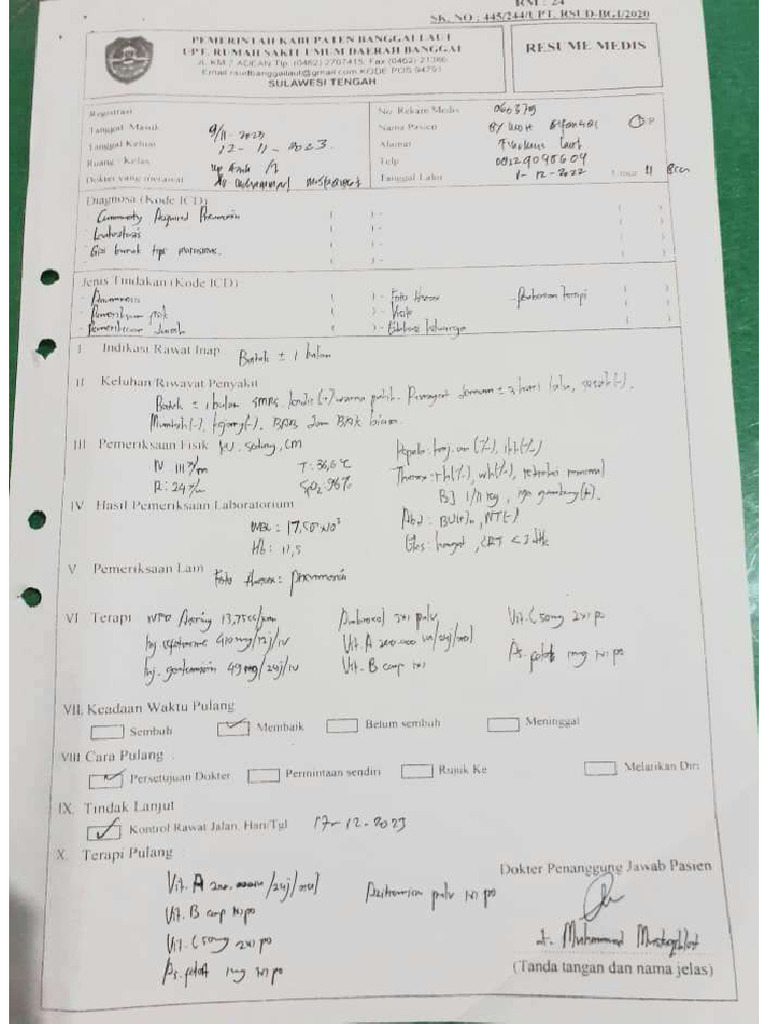 RM : 24
SK. NO : 445/244/UPT. RSUD-BGI/2020
PEMERINTAH KABUPATEN BANGGAI LAUT
UPT. RUMAH SAKIT UMUM DAERAH BANGGAI
JL. KM 7 ADEAN Tlp. (0462) 2707415, Fax (0462) 21366
Email rsudbanggailaut@gmail.com KODE POS 94751
SULAWESI TENGAH
RESUME MEDIS
Registrasi
Tanggal Masuk 9/11-2023
Tanggal Keluar 12-11-2023
Ruang / Kelas
Dokter yang merawat
No. Rekam Medis 060379
Nama Pasien
Alamat
Telp
Tanggal Lahir 1-12-2022 Umur 11 Bln
Diagnosa (Kode ICD)
- Community Acquired Pneumonia
- Leukositosis
- Gizi buruk tipe marasmus.
Jenis Tindakan (Kode ICD)
- Anamnesis - Foto thorax - Pemberian terapi
- Pemeriksaan fisik - Visite
- Pemeriksaan darah - Edukasi keluarga
I Indikasi Rawat Inap Batuk ± 1 bulan
II Keluhan/Riwayat Penyakit
Batuk ± 1 bulan SMRS, lendir (+) warna putih. Riwayat demam ± 3 hari lalu, sesak (-).
Muntah (-), kejang (-). BAB dan BAK biasa.
III Pemeriksaan Fisik KU: Sedang, CM
N: 117x/m T: 36,6°C
R: 24x/m SpO2: 96%
Thorax: rh (-/-), wh (-/-), retraksi minimal
Abd: BU(+)n, NT(-)
Eks: hangat, CRT < 2 dtk
IV Hasil Pemeriksaan Laboratorium
WBC = 17,50 x10³
Hb: 11,5
V Pemeriksaan Lain Foto thorax: pneumonia
VI Terapi IVFD Asering 13,75cc/jam
Inj. cefotaxime 410 mg/12j/iv
Inj. gentamisin 49 mg/24j/iv
Ambroxol 3x1 pulv
Vit. A 200.000 iu/24j/oral
Vit. B comp 1x1
Vit. C 50mg 2x1 po
As. folat 1mg 1x1 po
VII. Keadaan Waktu Pulang
Sembuh Membaik Belum sembuh Meninggal
VIII Cara Pulang :
Persetujuan Dokter Permintaan sendiri Rujuk Ke Melarikan Diri
IX. Tindak Lanjut
Kontrol Rawat Jalan, Hari/Tgl 17-12-2023
X. Terapi Pulang
Vit. A 200.000/24j/oral Azitromisin pulv 1x1 po
Vit. B comp 1x1 po
Vit. C 50mg 2x1 po
As. folat 1mg 1x1 po
Dokter Penanggung Jawab Pasien
dr. Muhammad
(Tanda tangan dan nama jelas)